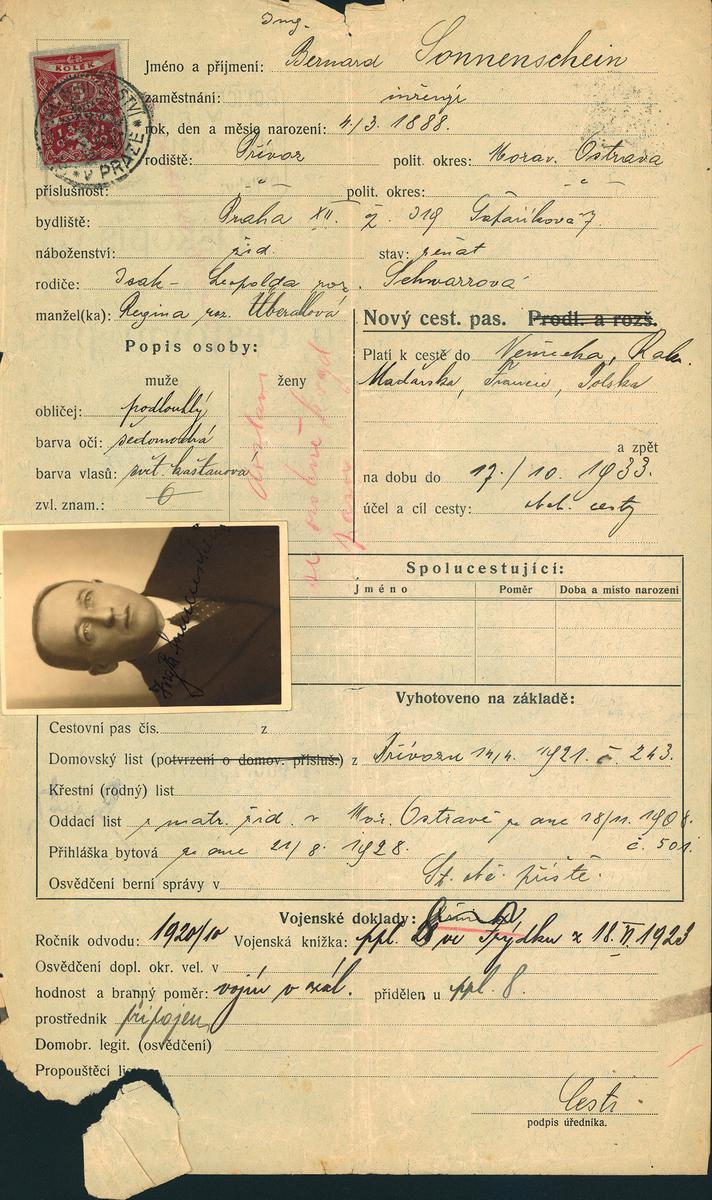 Ing.
Jméno a příjmení: Bernard Sonnenschein
KOLEK
V PRAZE
zaměstnání: inženýr
rok, den a měsíc narození: 4/3. 1888.
rodiště: Přívoz polit. okres: Morav. Ostrava
příslušnost: -"- polit. okres: -"-
bydliště: Praha XII. č. 319
náboženství: žid. stav: ženat
rodiče: Isak - Leopolda roz. Schwarzová
manžel(ka): Regina roz.
Nový cest. pas. Prodl. a rozš.
Popis osoby:
Platí k cestě do Německa, Rak.
muže ženy
Maďarska, Francie, Polska
obličej: podlouhlý
barva očí: šedomodrá
a zpět
barva vlasů: svět. kaštanová
na dobu do 17./10. 1933.
zvl. znam.:
účel a cíl cesty: cesty
Spolucestující:
Jméno Poměr Doba a místo narození
Vyhotoveno na základě:
Cestovní pas čís. z
Domovský list (potvrzení o domov. přísluš.) z Přívozu 14/4. 1921. č. 243.
Křestní (rodný) list
Oddací list z matr. žid. v Mor. Ostravě ze dne 18/11. 1908.
č. 501.
Přihláška bytová ze dne 21/8. 1928.
Osvědčení berní správy v příště.
Vojenské doklady:
Ročník odvodu: 1920/10 Vojenská knížka: ppl. 8 ve Frýdku z 18. VI 1923
Osvědčení dopl. okr. vel. v
hodnost a branný poměr: vojín v zál. přidělen u ppl. 8.
prostředník připojen
Domobr. legit. (osvědčení)
Propouštěcí
podpis úředníka.